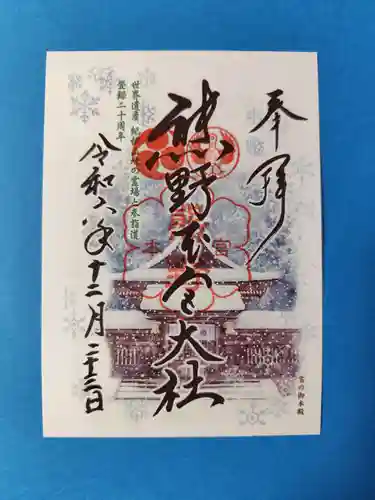 奉拝
熊野本宮大社
世界遺産 紀伊山地の霊場と参詣道
登録二十周年
令和六年十二月二十三日
雪の御本殿